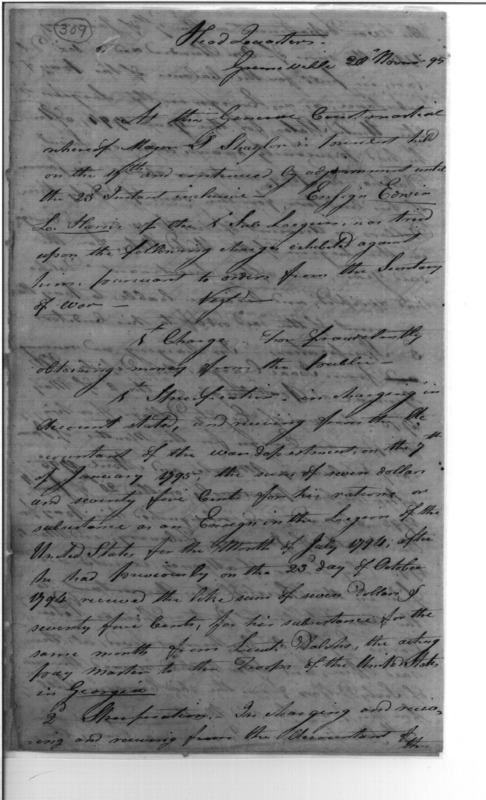 309
Head Quarters.
Greenville 28th Novr. 95
At the General Court martial
whereof Major Shaylor is President held
on the 19th and continued by adjournment until
the 23d Instant inclusive — Ensign Edwin
L. Harris of the 1 Sub Legion, was tried
upon the following charges exhibited against
him, pursuant to orders from the Secretary
of War — Vizt —
1st Charge. For fraudulently
obtaining money from the Public —
1st Specification. in charging in
Account stated, and receiving from the Ac-
countant of the war department on the 7th
of January 1795 the sum of seven dollars
and seventy five Cents for his rations or
subsistance as an Ensign in the Legion of the
United States for the Month of July 1794; after
he had previously on the 23d day of October
1794 received the like sum of seven Dollars &
seventy five Cents, for his subsistance for the
same month from Lieut. the acting
pay Master to the Troops of the United States
in Georgia
2d Specification. In charging and
and receiving from the Accountant of
the